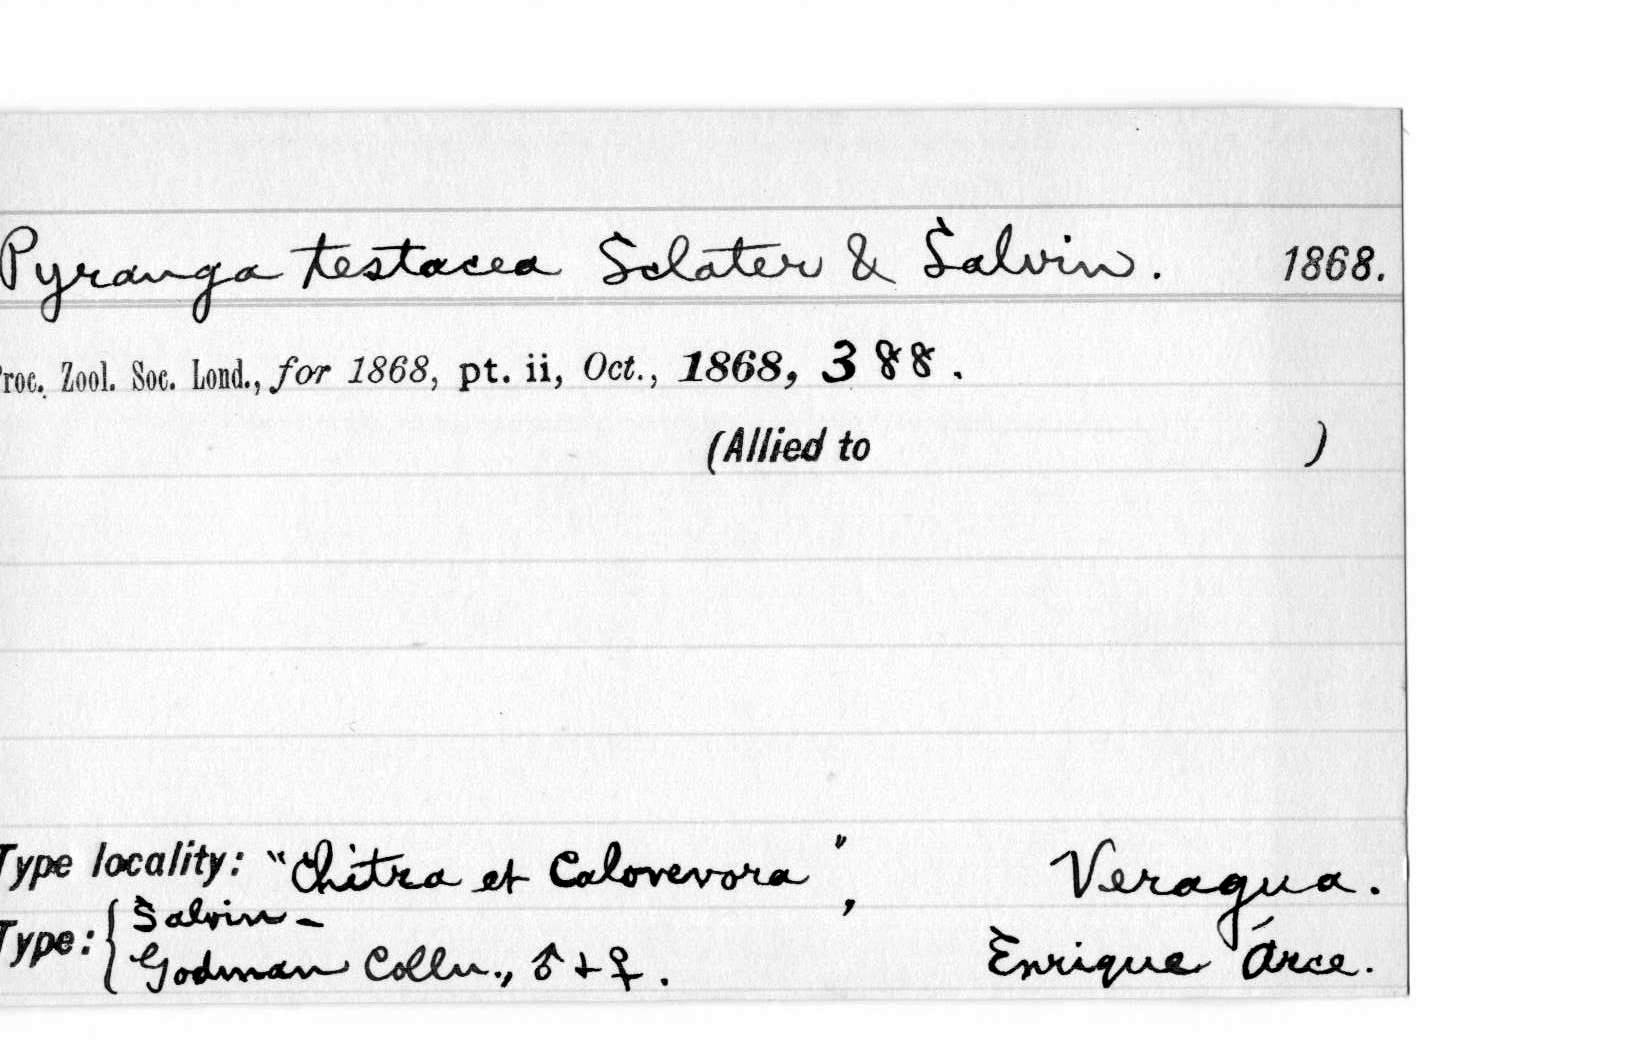 Pyranga testacea Sclater & Salvin. 1868.
Proc. Zool. Soc. Lond., for 1868, pt. ii, Oct., 1868, 388.
(Allied to )
Type locality: "Chitra et Calovevora", Veragua.
Type: { Salvin-
Godman Colln., ♂ + ♀. Enrique Arce.